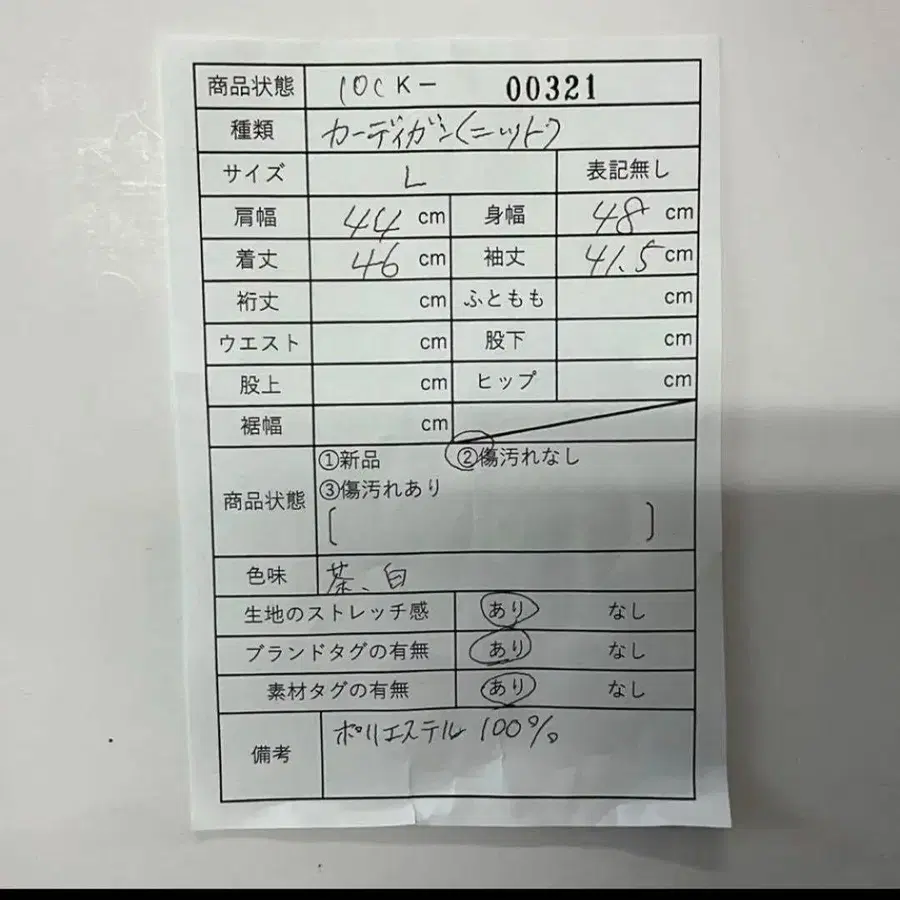 商品状態 10CK- 00321
種類 カーディガン(ニット)
サイズ L 表記無し
肩幅 44 cm 身幅 48 cm
着丈 46 cm 袖丈 41.5 cm
裄丈 cm ふともも cm
ウエスト cm 股下 cm
股上 cm ヒップ cm
裾幅 cm
商品状態 ①新品 ②傷汚れなし
③傷汚れあり
[ ]
色味 茶、白
生地のストレッチ感 あり なし
ブランドタグの有無 あり なし
素材タグの有無 あり なし
備考 ポリエステル 100%